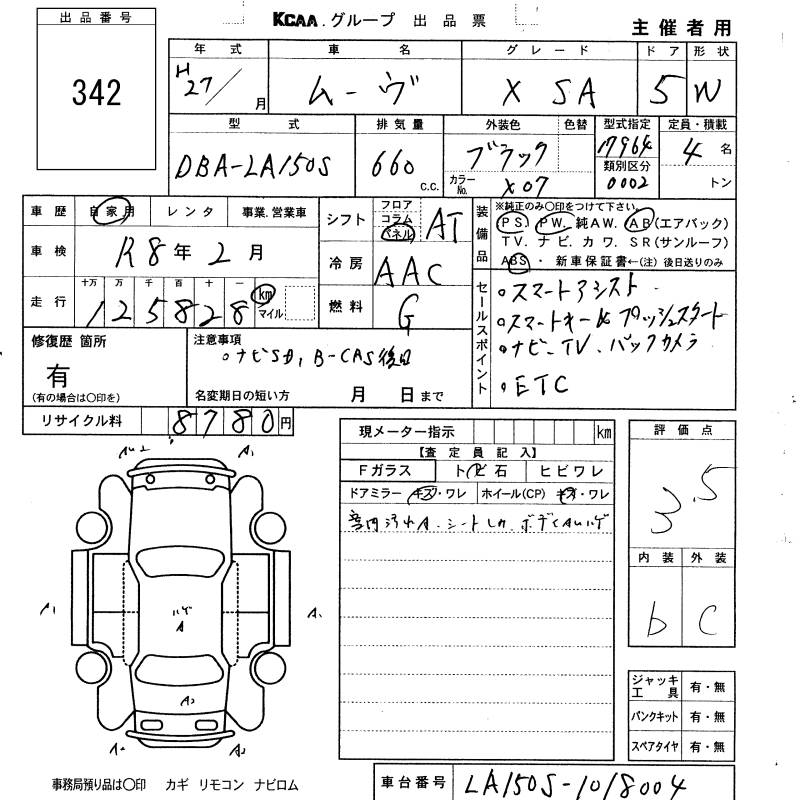 出品番号
342
KCAA.グループ 出品票
主催者用
年式 車名 グレード ドア 形状
H27/ 月 ムーヴ X SA 5 W
型式 排気量 外装色 色替 型式指定 定員・積載
DBA-LA150S 660 c.c. ブラック 17964 4名
カラーNo. X07 類別区分 0002 トン
車歴 自家用 レンタ 事業.営業車
車検 R8年2月
十万 万 千 百 十 一
走行 125828 km マイル
シフト フロア コラム パネル AT
冷房 AAC
燃料 G
装備品
※純正のみ○印をつけて下さい。
PS. PW. 純AW. AB(エアバック)
TV. ナビ. カワ. SR(サンルーフ)
ABS・ 新車保証書←(注) 後日送りのみ
セールスポイント
・スマートアシスト
・スマートキー& プッシュスタート
・ナビ、TV、バックカメラ
・ETC
修復歴 箇所
有
(有の場合は○印を)
注意事項
・ナビSD, B-CAS後日
名変期日の短い方 月 日まで
リサイクル料 8780円
現メーター指示 km
【査定員記入】
Fガラス トビ石 ヒビワレ
ドアミラー キズ・ワレ ホイール(CP) キズ・ワレ
室内汚れA、シートしみ、ボディAUハゲ
評価点
3.5
内装 外装
b C
A1
A1
A1
ハゲ
A
A2
A2
A2
ジャッキ工具 有・無
パンクキット 有・無
スペアタイヤ 有・無
事務局預り品は○印 カギ リモコン ナビロム
車台番号 LA150S-1018004